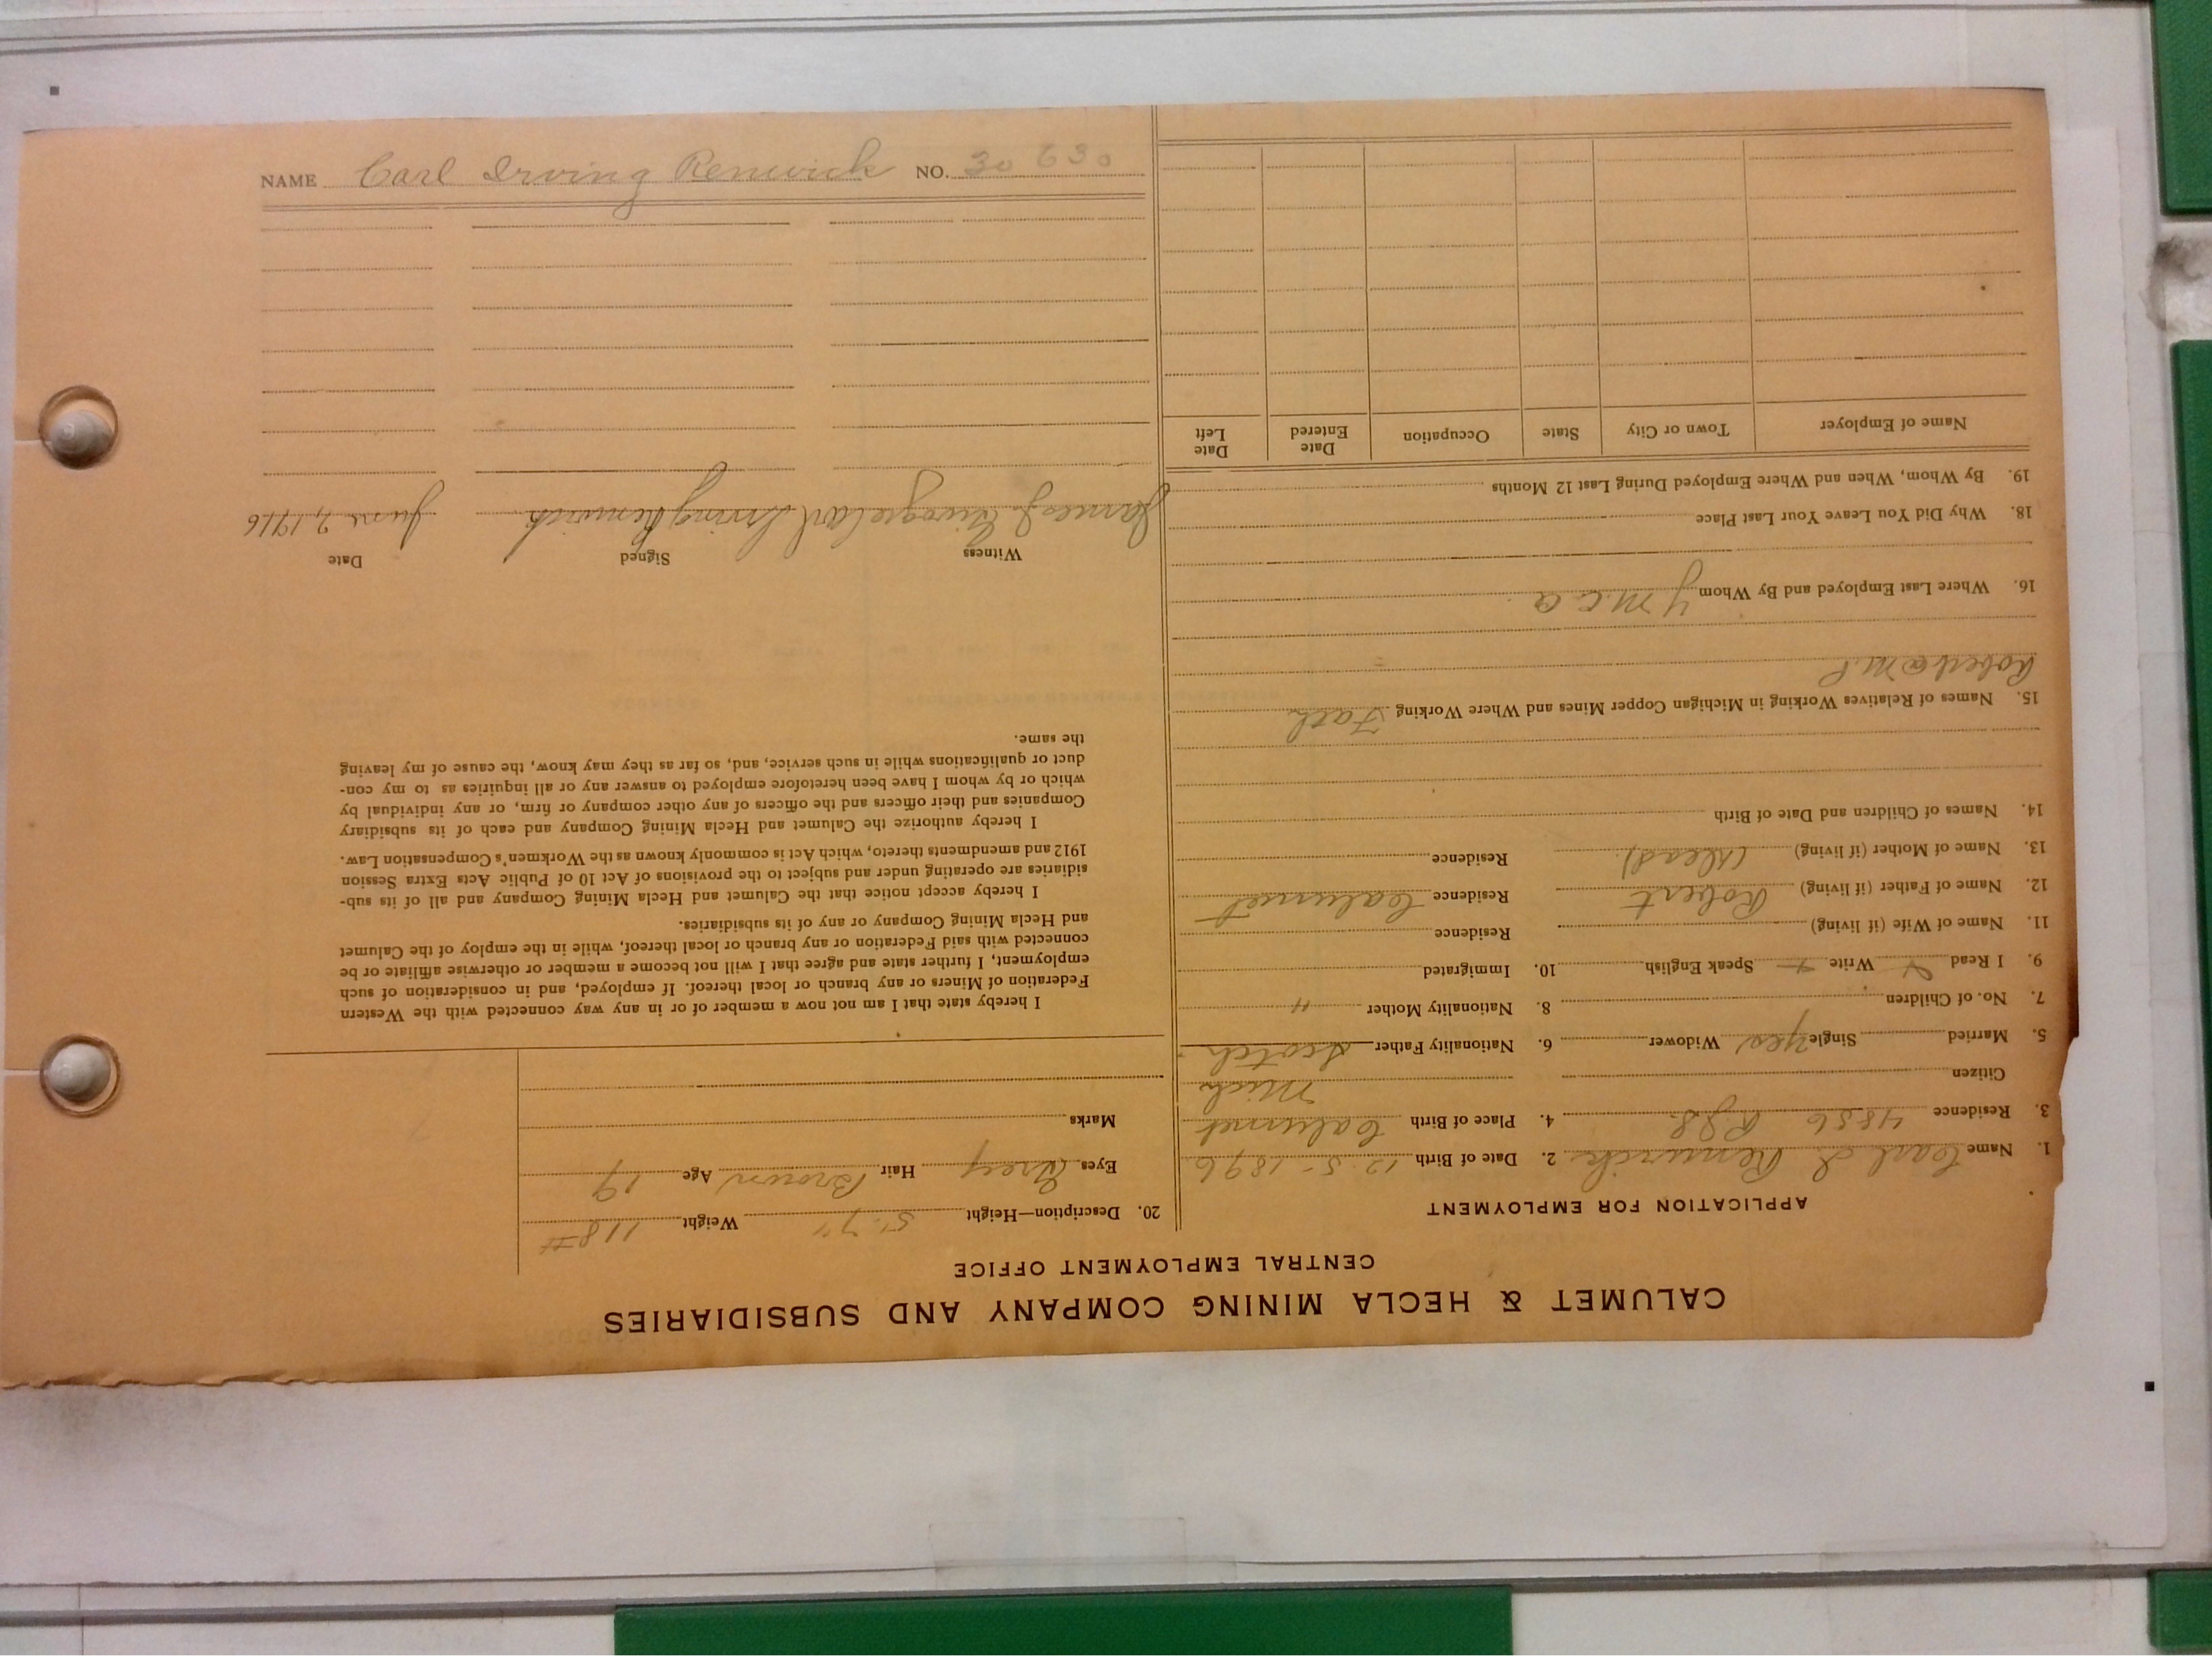 CALUMET & HECLA MINING COMPANY AND SUBSIDIARIES
CENTRAL EMPLOYMENT OFFICE
APPLICATION FOR EMPLOYMENT
1. Name Carl I Renwick 2. Date of Birth 12-5-1896
3. Residence 4856 4. Place of Birth Calumet
Citizen Mich
5. Married Single yes Widower 6. Nationality Father Scotch
7. No. of Children 8. Nationality Mother "
9. I Read Write Speak English 10. Immigrated
11. Name of Wife (if living) Residence
12. Name of Father (if living) Robert Residence Calumet
13. Name of Mother (if living) (Dead) Residence
14. Names of Children and Date of Birth
15. Names of Relatives Working in Michigan Copper Mines and Where Working Fath
Robert @
16. Where Last Employed and By Whom Y M C A
18. Why Did You Leave Your Last Place
19. By Whom, When and Where Employed During Last 12 Months
Name of Employer Town or City State Occupation Date Entered Date Left
20. Description—Height 5'-7" Weight 118#
Eyes Grey Hair Brown Age 19
Marks
I hereby state that I am not now a member of or in any way connected with the Western
Federation of Miners or any branch or local thereof. If employed, and in consideration of such
employment, I further state and agree that I will not become a member or otherwise affiliate or be
connected with said Federation or any branch or local thereof, while in the employ of the Calumet
and Hecla Mining Company or any of its subsidiaries.
I hereby accept notice that the Calumet and Hecla Mining Company and all of its sub-
sidiaries are operating under and subject to the provisions of Act 10 of Public Acts Extra Session
1912 and amendments thereto, which Act is commonly known as the Workmen's Compensation Law.
I hereby authorize the Calumet and Hecla Mining Company and each of its subsidiary
Companies and their officers and the officers of any other company or firm, or any individual by
which or by whom I have been heretofore employed to answer any or all inquiries as to my con-
duct or qualifications while in such service, and, so far as they may know, the cause of my leaving
the same.
Witness Signed Date
James J. Carl Irving Renwick June 7, 1916
NAME Carl Irving Renwick NO. 30630